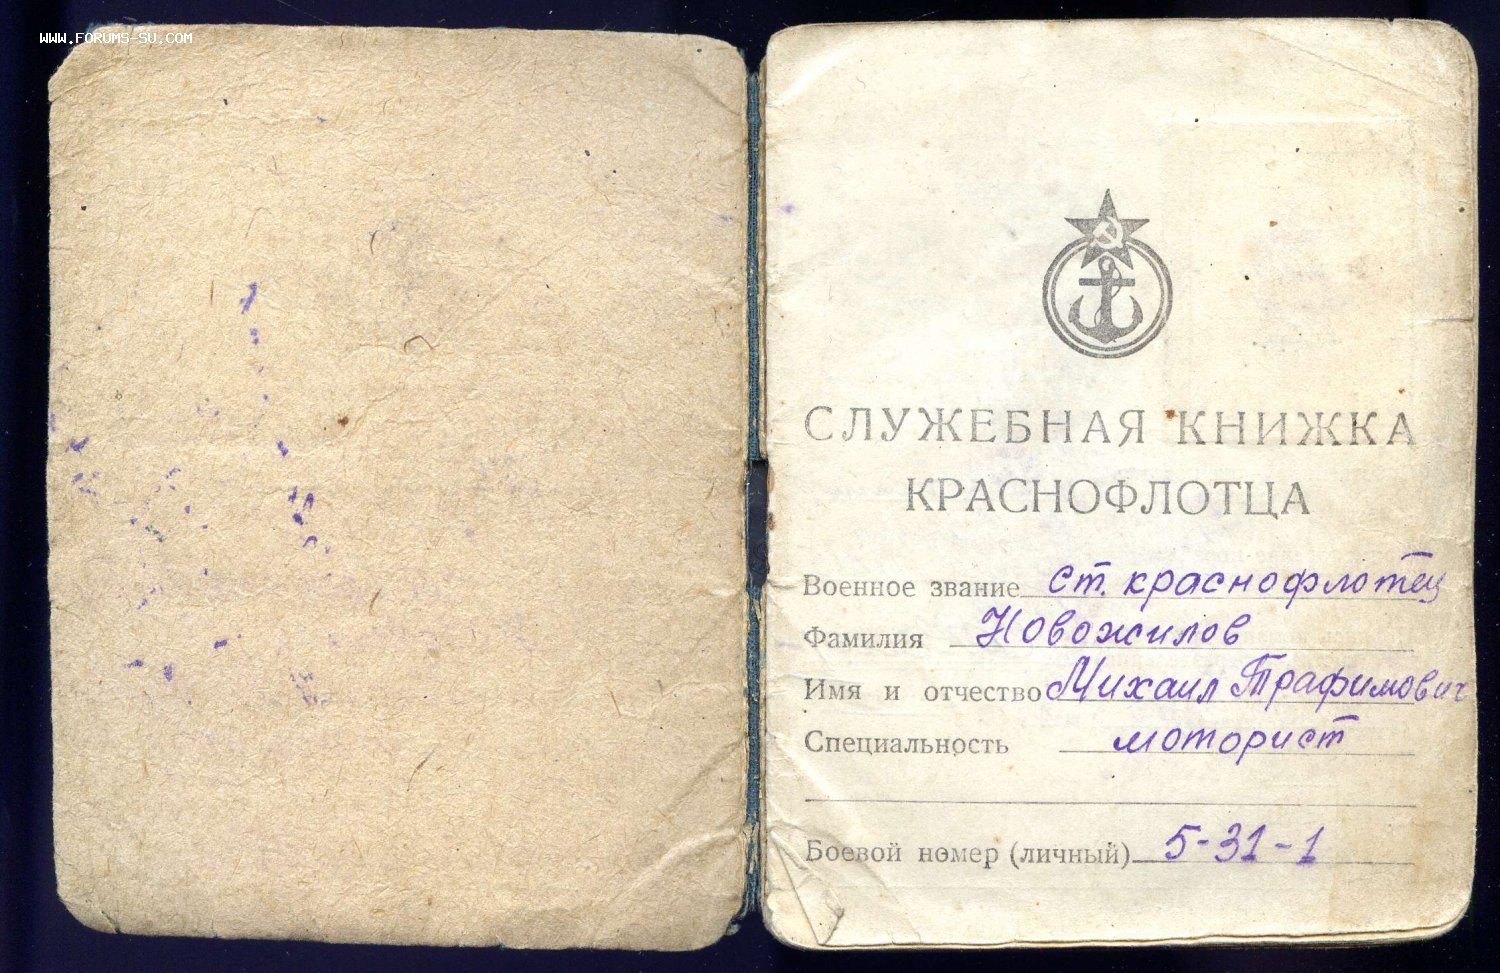 WWW.FORUMS-SU.COM
СЛУЖЕБНАЯ КНИЖКА
КРАСНОФЛОТЦА
Военное звание ст. краснофлотец
Фамилия Новожилов
Имя и отчество Михаил Трафимович
Специальность моторист
Боевой номер (личный) 5-31-1